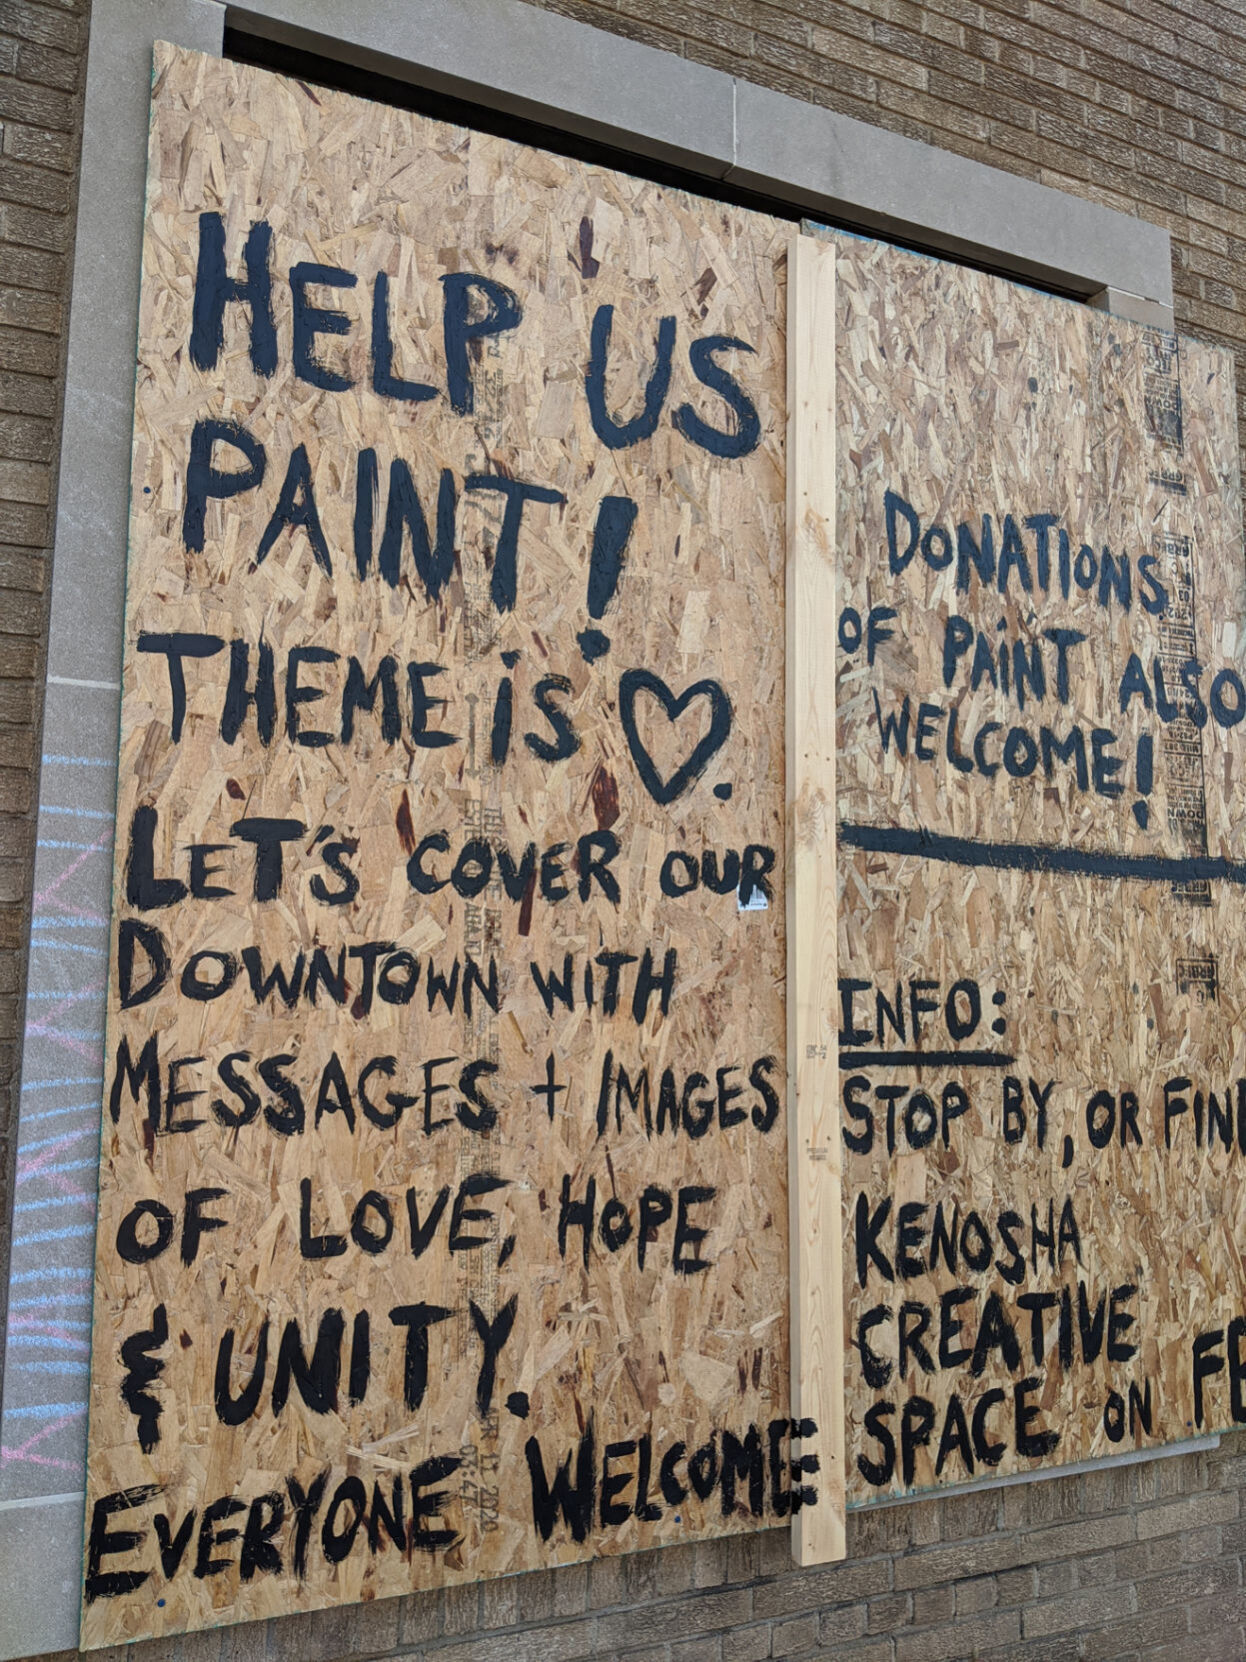 HELP US
PAINT!
THEME IS ♡.
LET'S COVER OUR
DOWNTOWN WITH
MESSAGES + IMAGES
OF LOVE, HOPE
& UNITY.
EVERYONE WELCOME
DONATIONS
OF PAINT ALSO
WELCOME!
INFO:
STOP BY, OR FIN
KENOSHA
CREATIVE
SPACE ON F